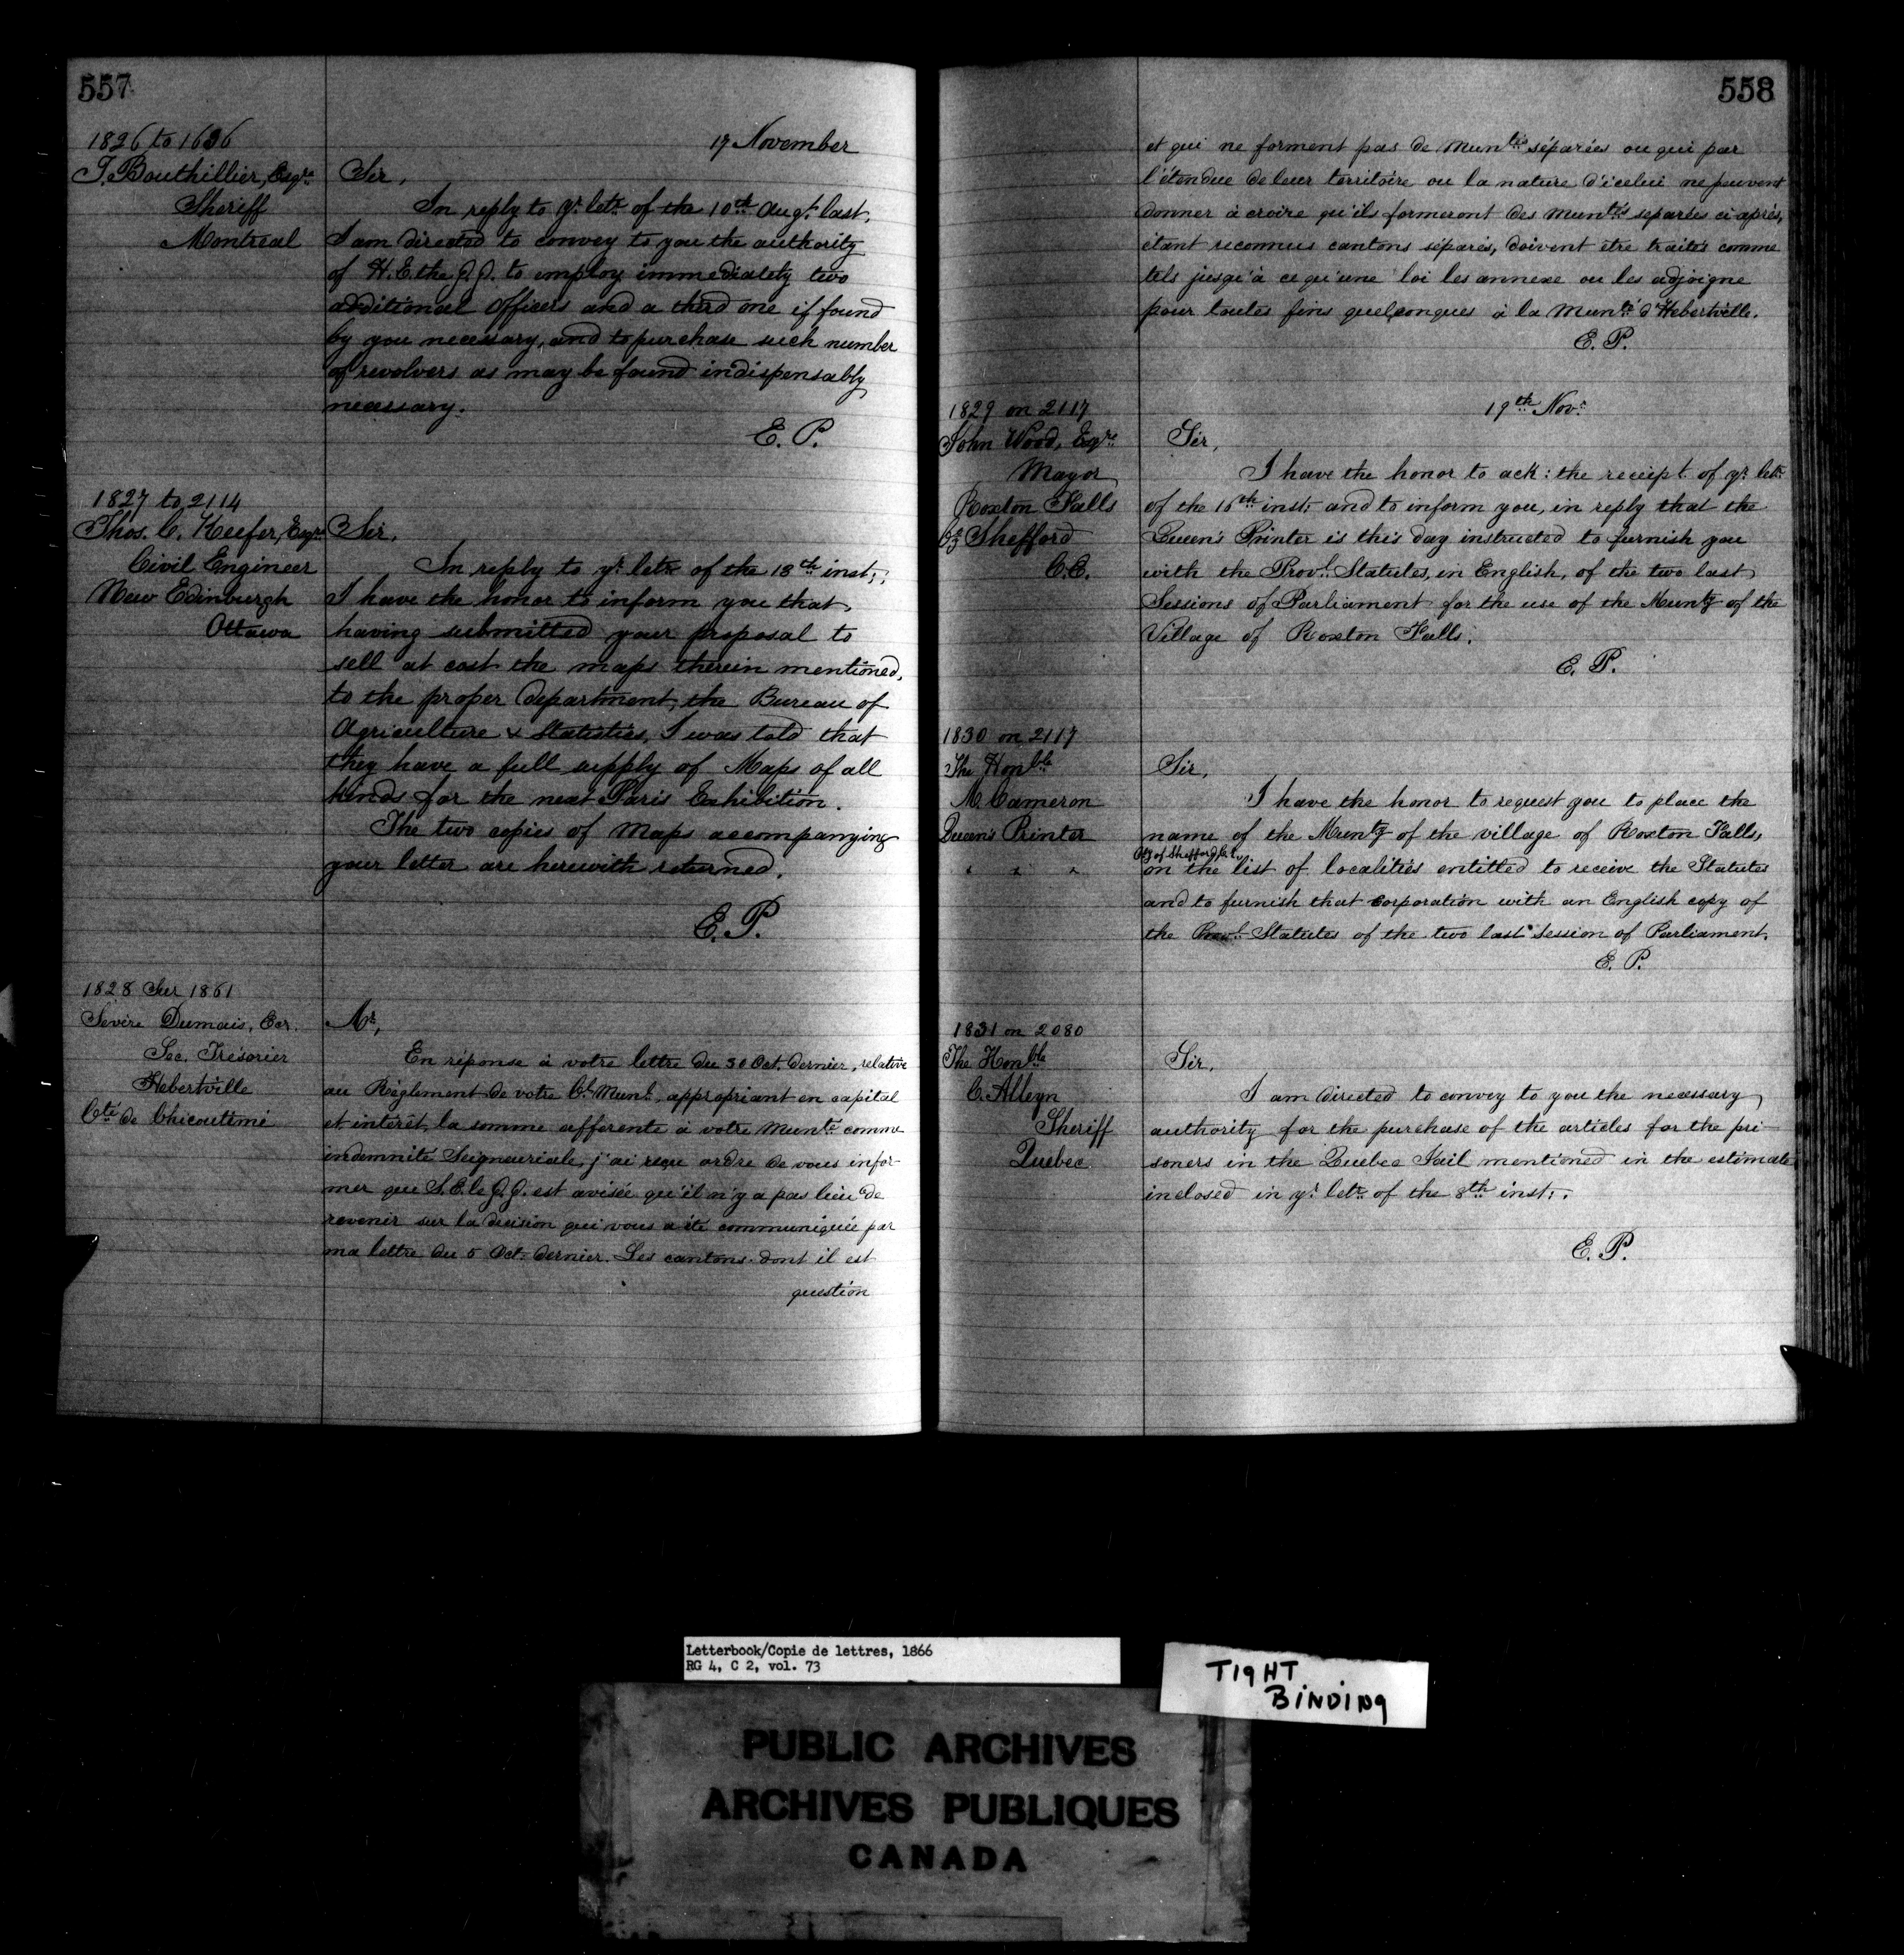 557
17 November
1826 to 1636
T. Bouthillier, Esqre
Sheriff
Montreal
Sir,
In reply to yr. letr. of the 10th Augt. last,
I am directed to convey to you the authority
of H. E. the G. G. to employ immediately two
additional Officers and a third one if found
by you necessary, and to purchase such number
of revolvers as may be found indispensably
necessary.
E. P.
1827 to 2114
Thos. C. Keefer, Esqre
Civil Engineer
New Edinburgh
Ottawa
Sir,
In reply to yr. letr. of the 13th inst:,
I have the honor to inform you that,
having submitted your proposal to
sell at cost the maps therein mentioned,
to the proper department, the Bureau of
Agriculture & Statistics, I was told that
they have a full supply of Maps of all
kinds for the next Paris Exhibition.
The two copies of Maps accompanying
your letter are herewith returned.
E. P.
1828 Sur 1861
Sévère Dumais, Ecr.
Sec. Trésorier
Hebertville
Cté. de Chicoutimi
Mr,
En réponse à votre lettre du 30 Oct. dernier, relative
au Règlement de votre Cl. Munl. appropriant en capital
et interêt, la somme afferente à votre Munté. comme
indemnité Seigneuriale, j'ai reçu ordre de vous infor-
mer que S. E. le G. G. est avisée qu'il n'y a pas lieu de
revenir sur la decision qui vous a été communiquée par
ma lettre du 5 Oct. dernier. Les cantons dont il est
question
558
et qui ne forment pas de Muntés séparées ou qui par
l'étendue de leur territoire ou la nature d'icelui ne peuvent
donner à croire qu'ils formeront des Muntés separées ci-après,
étant reconnus cantons séparés, doivent être traités comme
tels jusqu'à ce qu'une loi les annexe ou les adjoigne
pour toutes fins quelconques à la Munté. d'Hebertville.
E. P.
19th Novr.
1829 on 2117
John Wood, Esqre.
Mayor
Roxton Falls
Co Shefford
C. E.
Sir,
I have the honor to ack: the receipt of yr. letr.
of the 16th inst: and to inform you, in reply that the
Queen's Printer is this day instructed to furnish you
with the Provl. Statutes, in English, of the two last
Sessions of Parliament for the use of the Munty of the
Village of Roxton Falls.
E. P.
1830 on 2117
The Honble
M. Cameron
Queen's Printer
" " "
Sir,
I have the honor to request you to place the
name of the Munty of the village of Roxton Falls,
Cty of Shefford
on the list of localities entitled to receive the Statutes
and to furnish that Corporation with an English copy of
the Provl. Statutes of the two last Session of Parliament.
E. P.
1831 on 2080
The Honble
C. Alleyn
Sheriff
Quebec
Sir,
I am directed to convey to you the necessary
authority for the purchase of the articles for the pri-
soners in the Quebec Jail mentioned in the estimate
inclosed in yr. letr. of the 8th inst:.
E. P.
Letterbook/Copie de lettres, 1866
RG 4, C 2, vol. 73
TIGHT
BINDING
PUBLIC ARCHIVES
ARCHIVES PUBLIQUES
CANADA